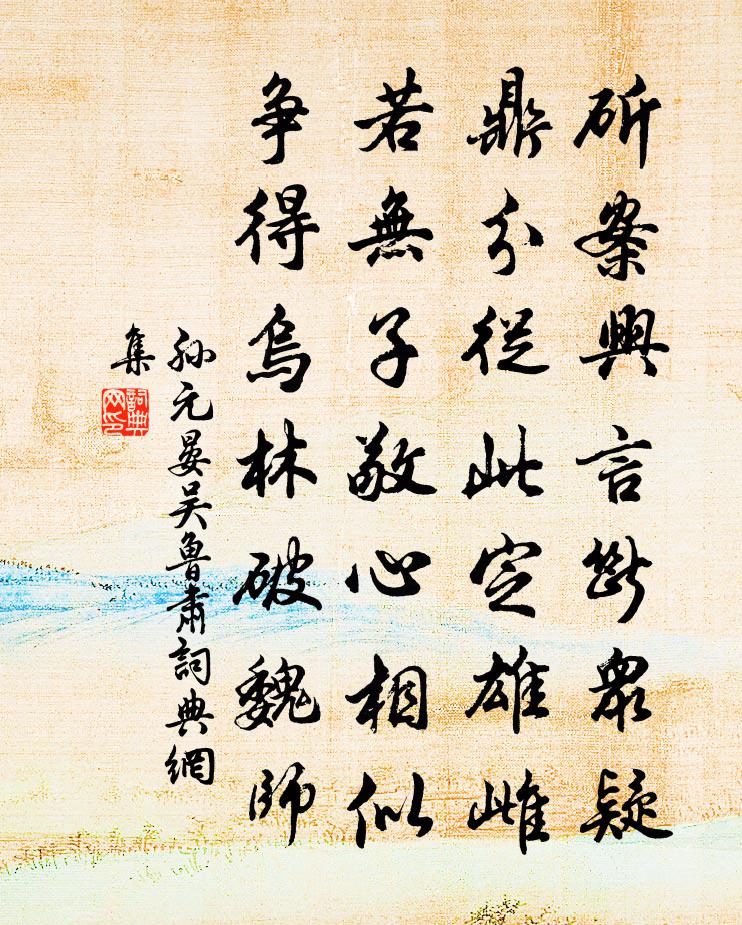 斫案興言斷眾疑
鼎分從此定雄雌
若無子敬心相似
争得烏林破魏師
孙元晏吴魯肅詞典網
集
詞典網印